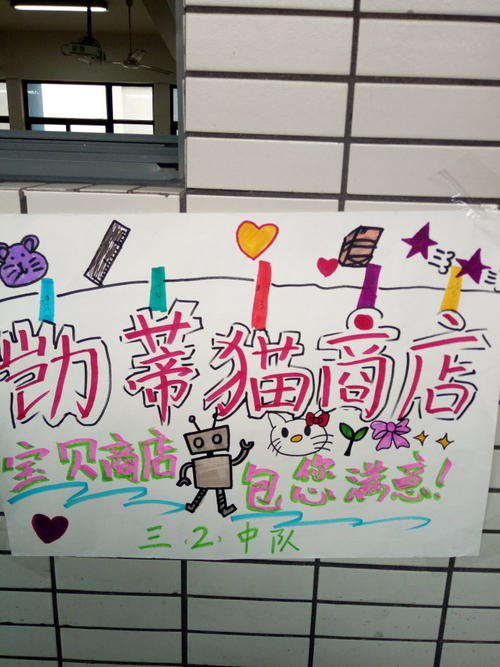 凯蒂猫商店
宝贝商店 包您满意!
三.2.中队